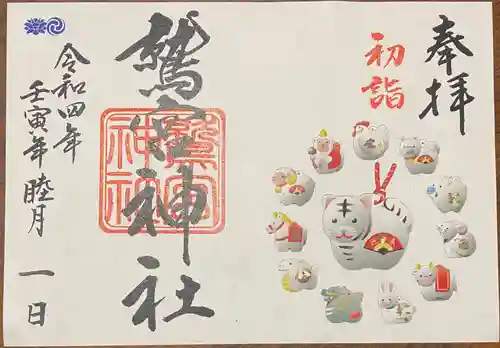 奉拝
初詣
鷲宮神社
鷲宮
神社
令和四年
壬寅年 睦月 一日